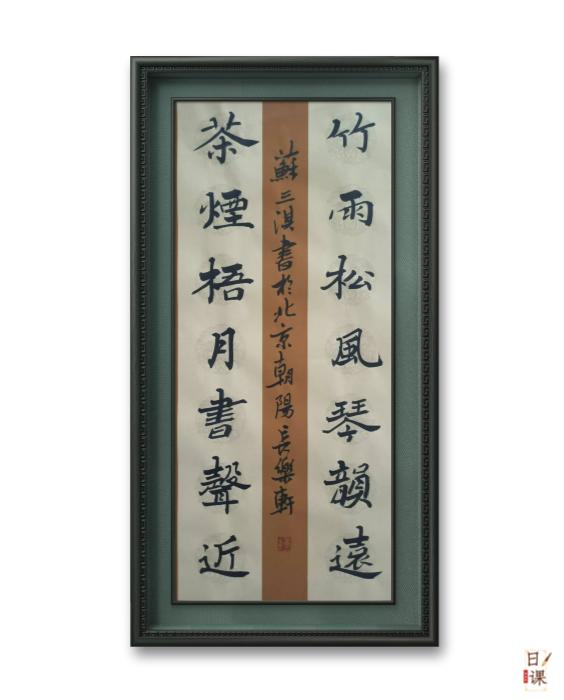 竹雨松風琴韻遠
茶煙梧月書聲近
蘇三淇書於北京朝陽長樂軒
日课